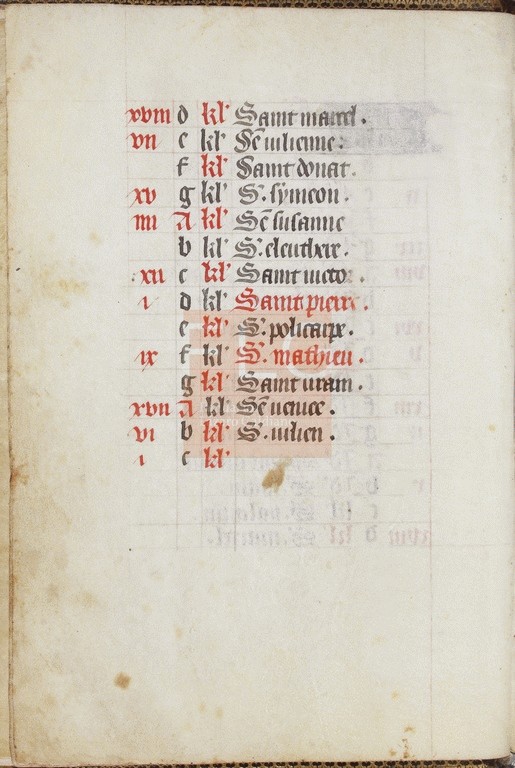 xviii d kl' Saint marcel.
vii e kl' Sē iulienne.
f kl' Saint donat.
xv g kl' S'. symeon.
iiii A kl' Sē susanne
b kl' S'. eleuthere.
xii c kl' Saint victor.
i d kl' Saint pierre.
e kl' S'. policarpe.
ix f kl' S'. mathieu.
g kl' Saint uram.
xvii A kl' Sē venice.
vi b kl' S'. iulien.
i c kl'